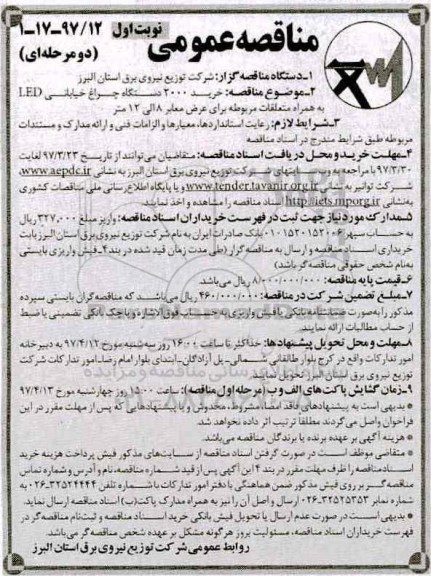 مناقصه عمومی
نوبت اول ۹۷/۱۲-۱۷-۱
(دو مرحله‌ای)
۱-دستگاه مناقصه گزار: شرکت توزیع نیروی برق استان البرز
۲-موضوع مناقصه: خرید ۲۰۰۰ دستگاه چراغ خیابانی LED
به همراه متعلقات مربوطه برای عرض معابر ۸ الی ۱۲ متر
۳-شرایط لازم: رعایت استانداردها، معیارها و الزامات فنی و ارائه مدارک و مستندات
مربوطه طبق شرایط مندرج در اسناد مناقصه
۴-مهلت خرید و محل دریافت اسناد مناقصه: متقاضیان می‌توانند از تاریخ ۹۷/۳/۲۳ لغایت
۹۷/۳/۳۰ با مراجعه به وب سایتهای شرکت توزیع نیروی برق استان البرز به نشانی www.aepdc.ir،
شرکت توانیر به نشانی www.tender.tavanir.org.ir و یا پایگاه اطلاع رسانی ملی مناقصات کشوری
به‌نشانی http://iets.mporg.ir اسناد مناقصه را مشاهده و اخذ نمایند.
۵-مدارک مورد نیاز جهت ثبت در فهرست خریداران اسناد مناقصه: واریز مبلغ ۳۲۷/۰۰۰ ریال
به حساب سپهر ۰۱۰۱۵۲۰۱۵۲۰۰۶ بانک صادرات ایران به نام شرکت توزیع نیروی برق استان البرز بابت
خریداری اسناد مناقصه و ارسال به مناقصه گزار (طی مدت زمان قید شده در بند ۴-فیش واریزی بایستی
به‌نام شخص حقوقی مناقصه گر باشد)
۶-قیمت پایه مناقصه: ۸/۰۰۰/۰۰۰/۰۰۰ ریال می‌باشد.
۷-مبلغ تضمین شرکت در مناقصه: ۴۶۰/۰۰۰/۰۰۰ ریال می‌باشد که مناقصه‌گران بایستی سپرده
مذکور را به‌صورت ضمانتنامه بانکی یا فیش واریزی به حساب فوق الاشاره و یا چک بانکی تضمینی یا ضبط
از حساب مطالبات ارائه نمایند.
۸-مهلت و محل تحویل پیشنهادها: حداکثر تا ساعت ۱۶:۰۰ روز سه شنبه مورخ ۹۷/۴/۱۲ به دبیرخانه
امور تدارکات واقع در کرج بلوار طالقانی شمالی- پل آزادگان-ابتدای بلوار امام رضا-امور تدارکات شرکت
توزیع نیروی برق استان البرز تحویل نمایند.
۹-زمان گشایش پاکت‌های الف و ب (مرحله اول مناقصه): ساعت ۱۵:۰۰ روز چهارشنبه مورخ ۹۷/۴/۱۳
* بدیهی است به پیشنهادهای فاقد امضا، مشروط، مخدوش و یا پیشنهادهایی که پس از مهلت مقرر در این
فراخوان واصل می‌گردند مطلقا ترتیب اثر داده نخواهد شد.
* هزینه آگهی بر عهده برنده یا برندگان مناقصه می‌باشد.
* متقاضی موظف است در صورت گرفتن اسناد مناقصه از سایت‌های مذکور فیش پرداخت هزینه خرید
اسناد مناقصه را ظرف مهلت مقرر در بند ۴ این آگهی پس از قید شماره مناقصه، نام و آدرس و شماره تماس
مناقصه گر بر روی فیش مذکور ضمن هماهنگی با دفتر امور تدارکات با شماره تلفن ۳۲۵۲۴۴۴۴-۰۲۶ به
شماره نمابر ۳۲۵۲۵۳۵۳-۰۲۶ ارسال و اصل آن را نیز به همراه مدارک پاکت(ب) اسناد مناقصه ارسال نماید.
* بدیهی است در صورت عدم ارسال یا تحویل فیش بانکی خرید اسناد مناقصه و ثبت‌نام مناقصه‌گر در
فهرست خریداران اسناد مناقصه، مسئولیت بروز هرگونه مشکل بر عهده شخص مناقصه گر می‌باشد.
روابط عمومی شرکت توزیع نیروی برق استان البرز